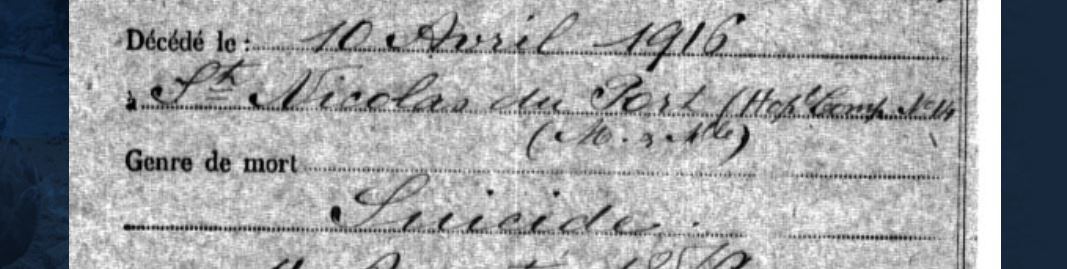 Décédé le : 10 Avril 1916
à St Nicolas du Port (Hopl Comp. No 14
(M. & Mlle)
Genre de mort
Suicide.